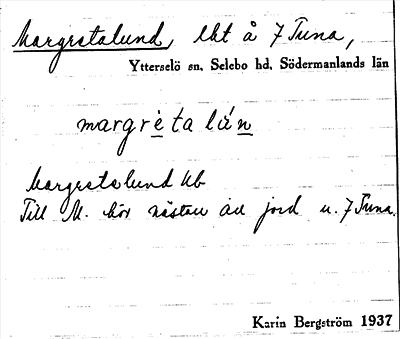 Margretalund, lht å 7 Tuna,
Ytterselö sn, Selebo hd, Södermanlands län
margrèta lún
Margretalund hb
Till M. hör nästan all jord u. 7 Tuna.
Karin Bergström 1937